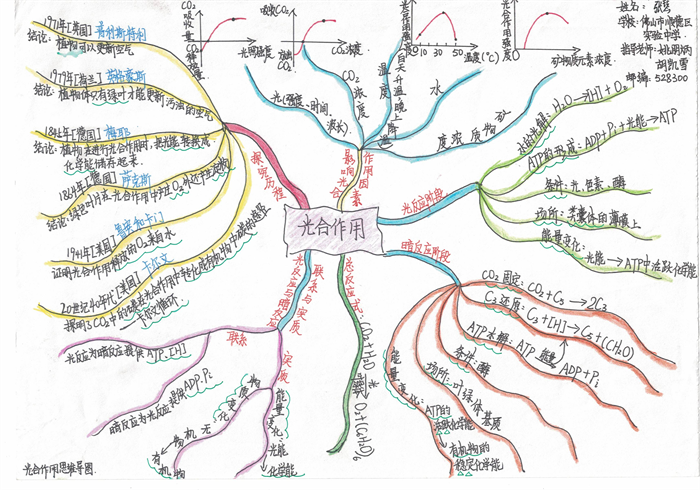 1971年[英国]普利斯特利
结论:植物可以更新空气
1979年[荷兰]英格豪斯
结论:植物体只有绿叶才能更新污浊的空气
1845年[德国]梅耶
结论:植物在进行光合作用时,把光能转换成
化学能储存起来.
1864年[德国]萨克斯
结论:绿色叶片在光合作用中产生O₂外还产生淀粉
1941年[美国]鲁宾和卡门
证明光合作用释放的O₂来自水
20世纪40年代[美国]卡尔文
探明了CO₂中的碳在光合作用中转化成有机物中碳的途径
→卡尔文循环
探究历程
CO₂吸收量
CO₂释放量
光照强度
吸收CO₂
放出CO₂
CO₂浓度
光合作用强度
10 30 50 温度(℃)
光合作用强度
矿物质元素浓度
姓名:
学校:佛山市顺德区
实验中学
指导老师:姚朋炳
胡凯雷
邮编:528300
光(强度、时间、
波长)
CO₂浓度
温度
白天升温晚上降温
水
矿物质浓度
影响光合作用因素
光合作用
光反应阶段
水的光解:H₂O→[H]+O₂
ATP的形成:ADP+Pi+光能→ATP
条件:光、色素、酶
场所:类囊体的薄膜上
能量变化:
光能→ATP中活跃化学能
暗反应阶段
CO₂固定:CO₂+C₅→2C₃
C₃还原:C₃+[H]→C₅+(CH₂O)
ATP水解:ATP→ADP+Pi
能量
条件:酶
场所:叶绿体基质
能量变化:ATP的
活跃化学能
→有机物的
稳定化学能
总反应式:CO₂+H₂O
光
O₂+(C₆H₂O)₆
光反应与暗反应
联系与实质
联系
光反应为暗反应提供ATP、[H]
暗反应为光反应提供ADP、Pi
实质
物质变化
无机物
有机物
能量变化:光能
→化学能
光合作用思维导图.